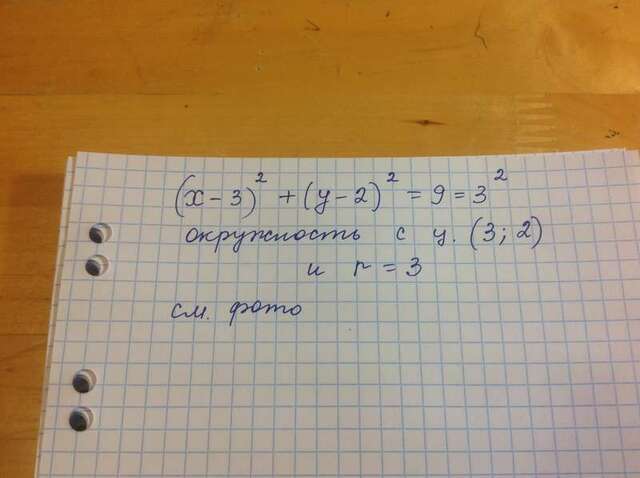 (x-3)² + (y-2)² = 9 = 3²
окружность с ц. (3; 2)
и r = 3
см. фото